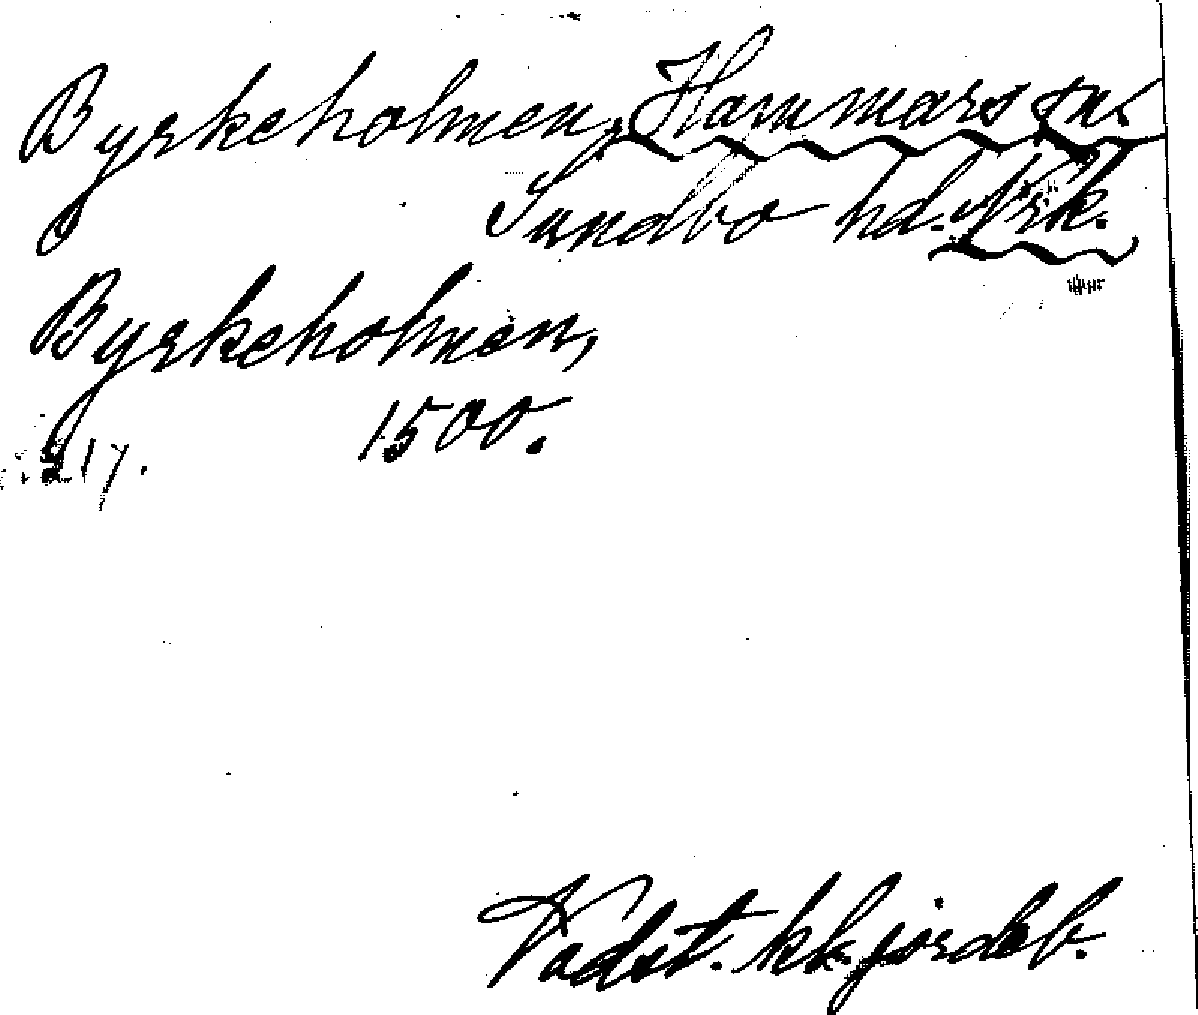 Byrkeholmen, Hammars sn.
Sundbo hd. Nrk.
Byrkeholmen,
1500.
217.
Vadst. kl. jordeb.